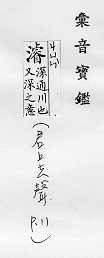 彙音寶鑑
濬
深通川也
又深之意
(君上去聲 P.11)